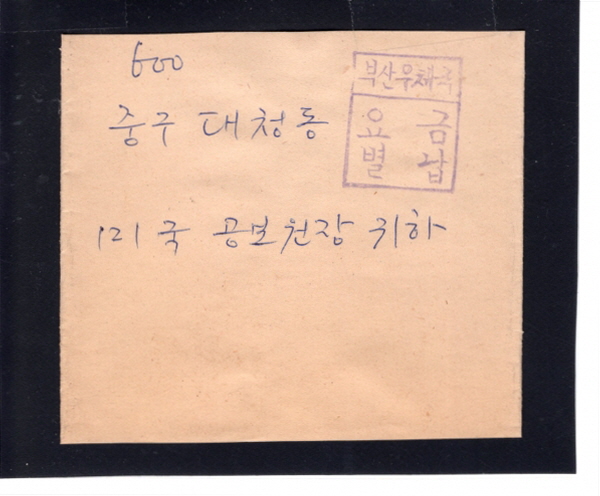 600
중구 대청동
미국 공보원장 귀하
부산우체국
요금
별납